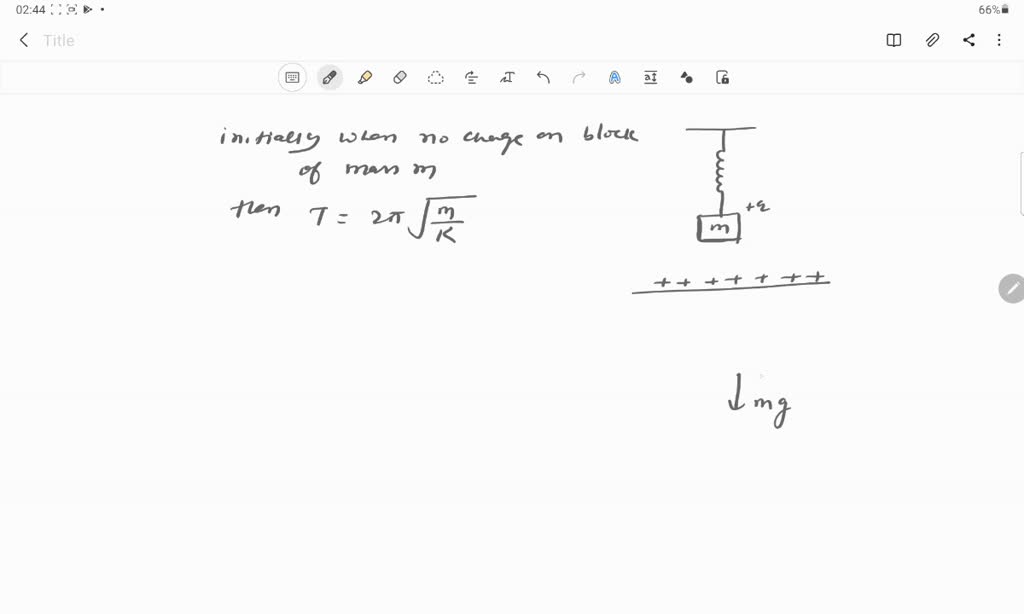 02:44
66%
Title
initially when no charge on block
of mass m
then T = 2π √(m/K)
+q
m
+ + + + + + +
↓ mg